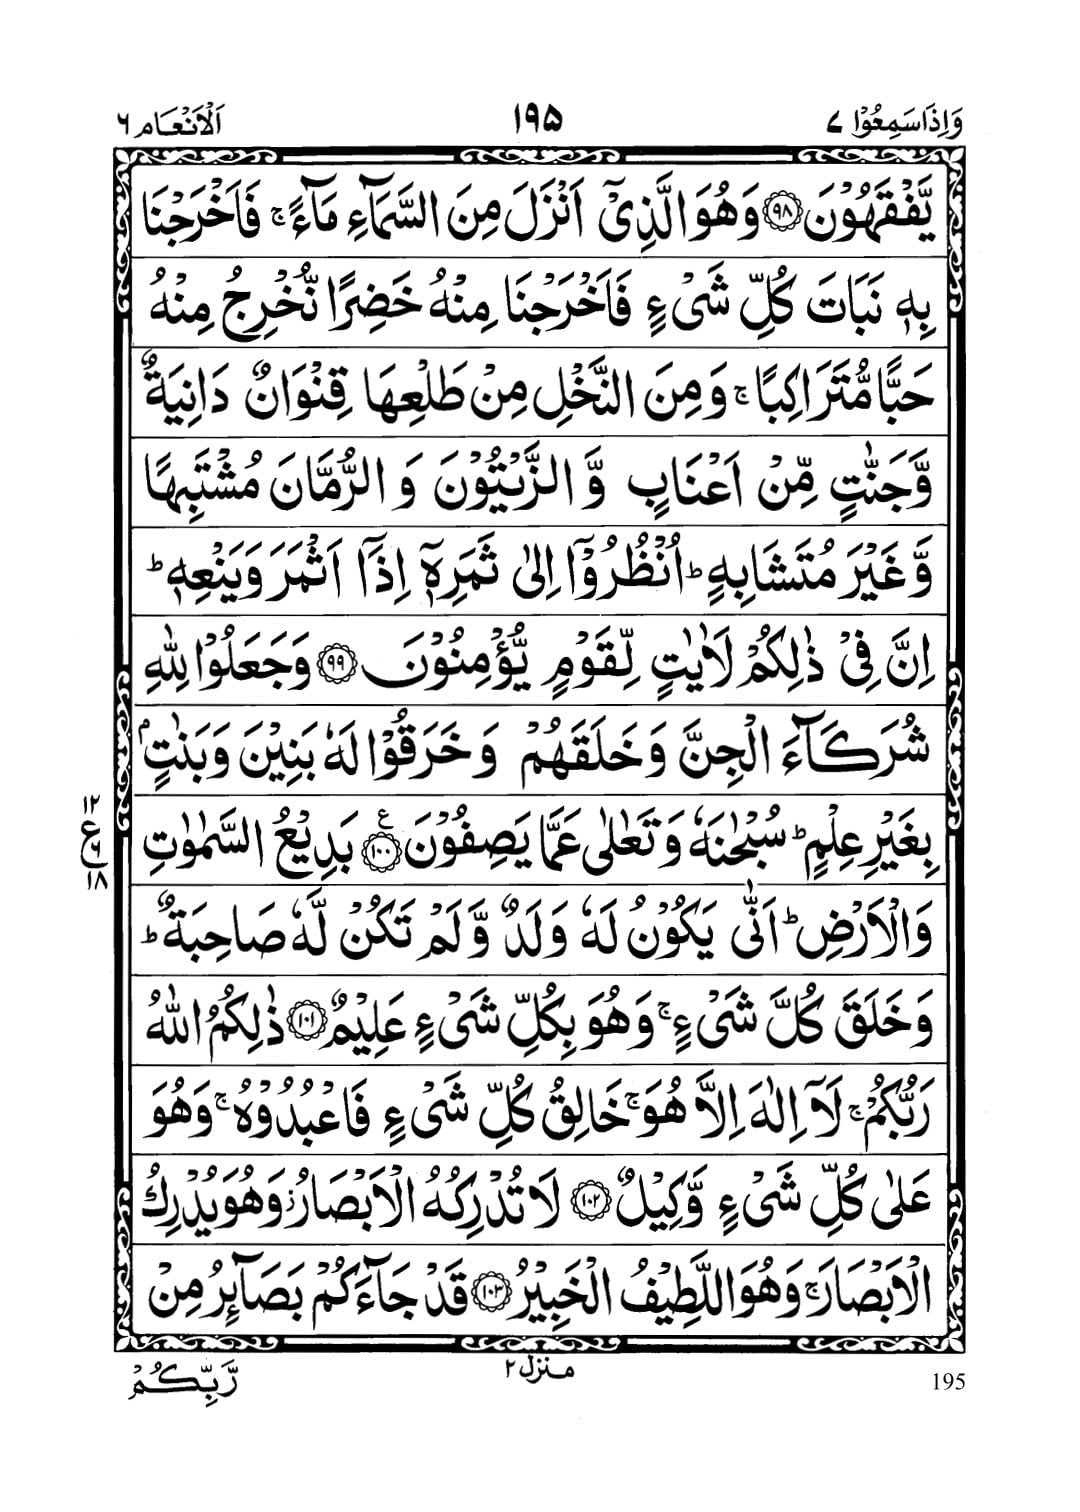 وَاِذَاسَمِعُوْا ۷ ۱۹۵ اَلْاَنْعَام ۶
يَّفْقَهُوْنَ ﴿۹۸﴾ وَهُوَ الَّذِىْٓ اَنْزَلَ مِنَ السَّمَآءِ مَآءً ۚ فَاَخْرَجْنَا
بِهٖ نَبَاتَ كُلِّ شَىْءٍ فَاَخْرَجْنَا مِنْهُ خَضِرًا نُّخْرِجُ مِنْهُ
حَبًّا مُّتَرَاكِبًا ۚ وَمِنَ النَّخْلِ مِنْ طَلْعِهَا قِنْوَانٌ دَانِيَةٌ
وَّجَنّٰتٍ مِّنْ اَعْنَابٍ وَّ الزَّيْتُوْنَ وَ الرُّمَّانَ مُشْتَبِهًا
وَّ غَيْرَ مُتَشَابِهٍ ؕ اُنْظُرُوْٓا اِلٰى ثَمَرِهٖٓ اِذَآ اَثْمَرَ وَيَنْعِهٖ ؕ
اِنَّ فِىْ ذٰلِكُمْ لَاٰيٰتٍ لِّقَوْمٍ يُّؤْمِنُوْنَ ﴿۹۹﴾ وَجَعَلُوْا لِلّٰهِ
شُرَكَآءَ الْجِنَّ وَ خَلَقَهُمْ وَ خَرَقُوْا لَهٗ بَنِيْنَ وَ بَنٰتٍۢ
بِغَيْرِ عِلْمٍ ؕ سُبْحٰنَهٗ وَ تَعٰلٰى عَمَّا يَصِفُوْنَ ﴿۱۰۰﴾ ع بَدِيْعُ السَّمٰوٰتِ
۱۲
ع
۶
۱۸
وَ الْاَرْضِ ؕ اَنّٰى يَكُوْنُ لَهٗ وَلَدٌ وَّ لَمْ تَكُنْ لَّهٗ صَاحِبَةٌ ؕ
وَ خَلَقَ كُلَّ شَىْءٍ ۚ وَهُوَ بِكُلِّ شَىْءٍ عَلِيْمٌ ﴿۱۰۱﴾ ذٰلِكُمُ اللّٰهُ
رَبُّكُمْ ۚ لَآ اِلٰهَ اِلَّا هُوَ ۚ خَالِقُ كُلِّ شَىْءٍ فَاعْبُدُوْهُ ۚ وَهُوَ
عَلٰى كُلِّ شَىْءٍ وَّكِيْلٌ ﴿۱۰۲﴾ لَا تُدْرِكُهُ الْاَبْصَارُ ز وَهُوَ يُدْرِكُ
الْاَبْصَارَ ۚ وَهُوَ اللَّطِيْفُ الْخَبِيْرُ ﴿۱۰۳﴾ قَدْ جَآءَكُمْ بَصَآئِرُ مِنْ
195 منزل ۲ رَّبِّكُمْ